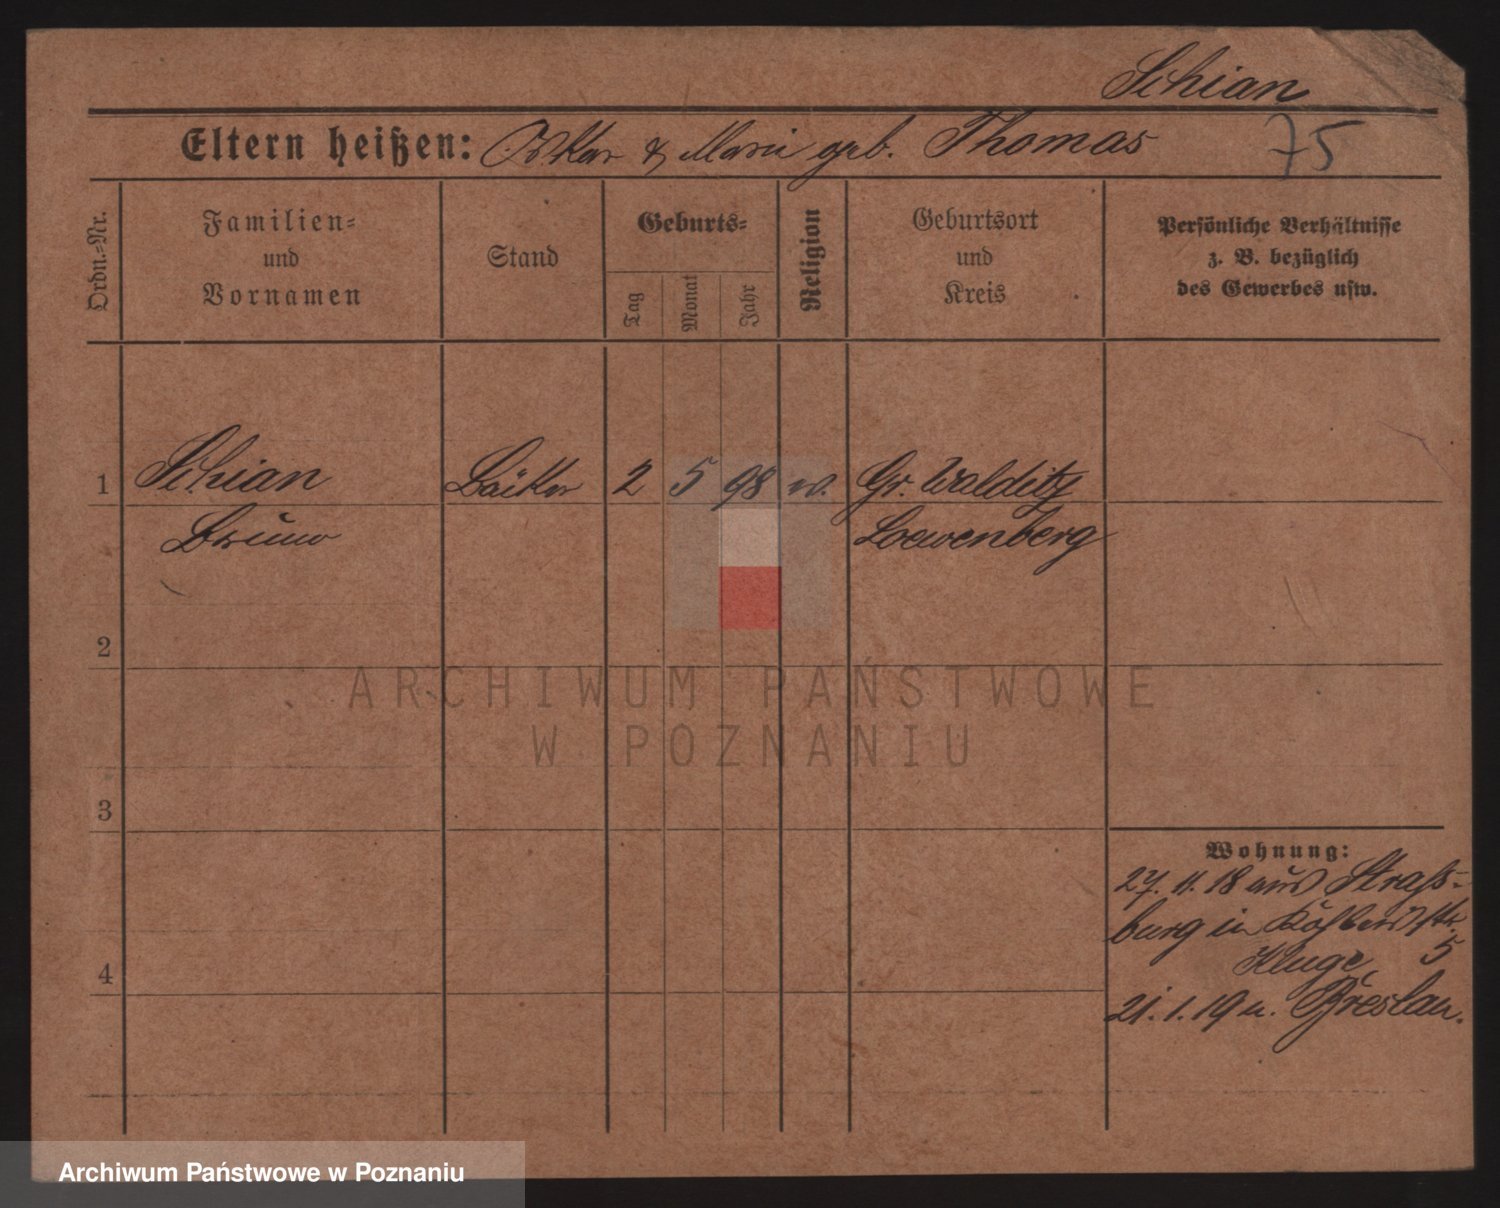 Schian
Eltern heißen: Oskar & Marie geb. Thomas
75
Ordn.-Nr.
Familien- und Vornamen
Stand
Geburts-
Tag
Monat
Jahr
Religion
Geburtsort und Kreis
Persönliche Verhältnisse
z. B. bezüglich
des Gewerbes usw.
1 Schian Bäcker 2 5 98 ev. Gr. Walditz
Bruno Loewenberg
2
ARCHIWUM PAŃSTWOWE
W POZNANIU
3
Wohnung:
27. 11. 18 aus Straß-
burg in
Kluge 5
4
21. 1. 19 n. Breslau.
Archiwum Państwowe w Poznaniu